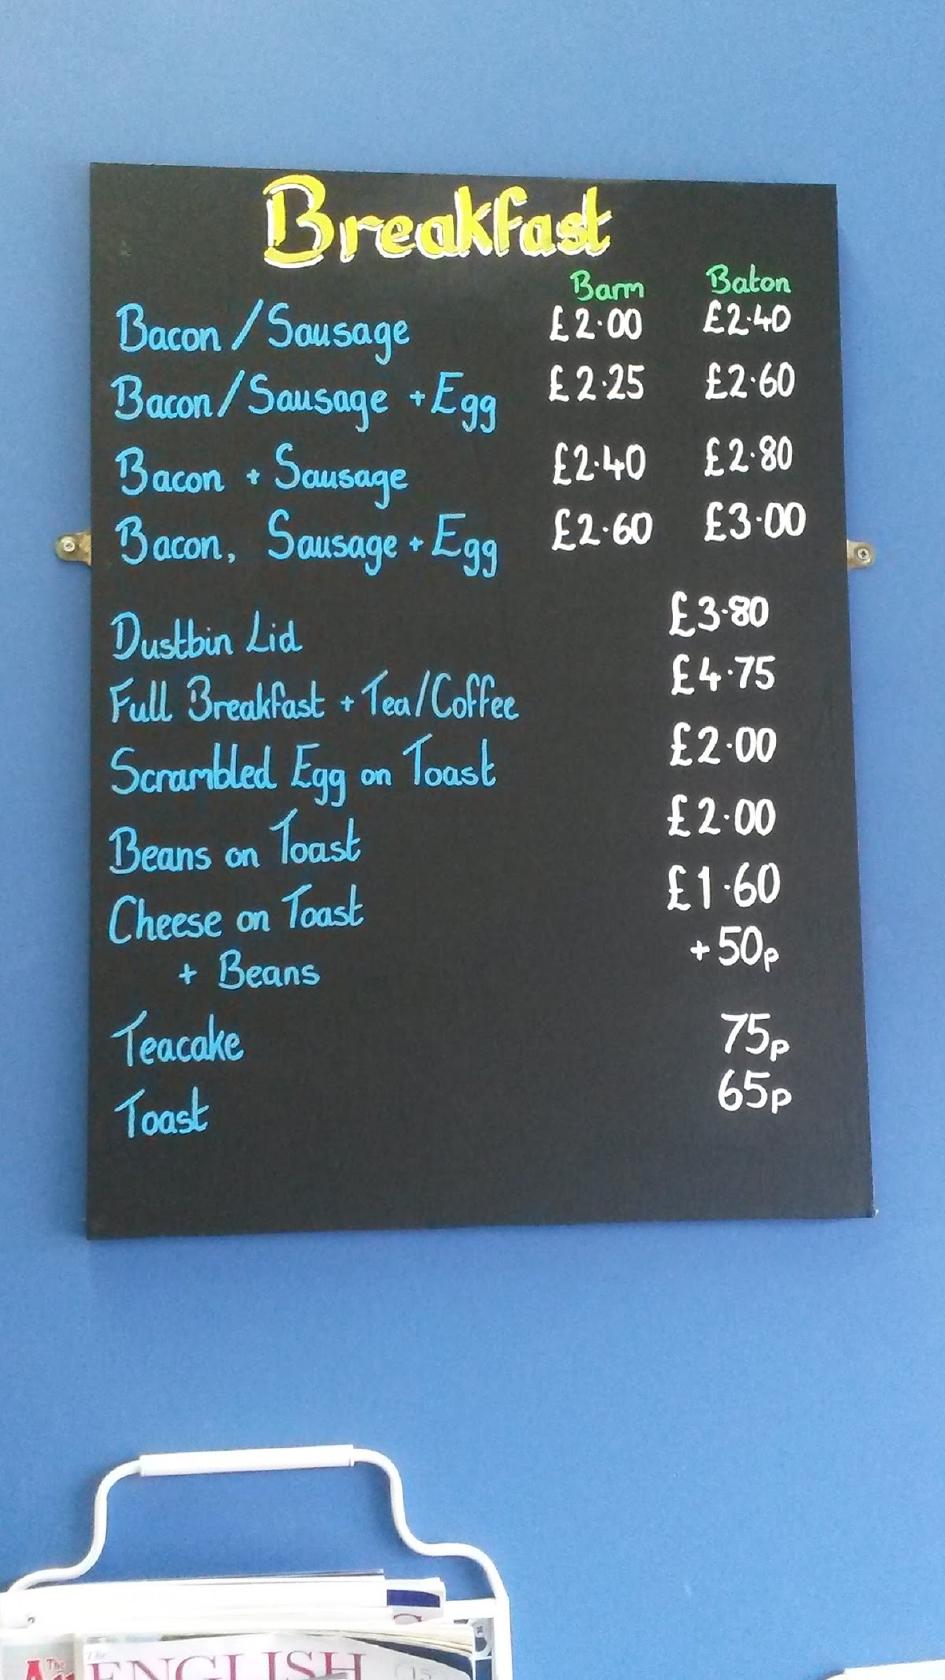 Breakfast
Barm Baton
Bacon / Sausage £2·00 £2·40
Bacon/Sausage + Egg £2·25 £2·60
Bacon + Sausage £2·40 £2·80
Bacon, Sausage + Egg £2·60 £3·00
Dustbin Lid £3·80
Full Breakfast + Tea/Coffee £4·75
Scrambled Egg on Toast £2·00
Beans on Toast £2·00
Cheese on Toast £1·60
+ Beans +50p
Teacake 75p
Toast 65p
The
The
ENGLISH
15